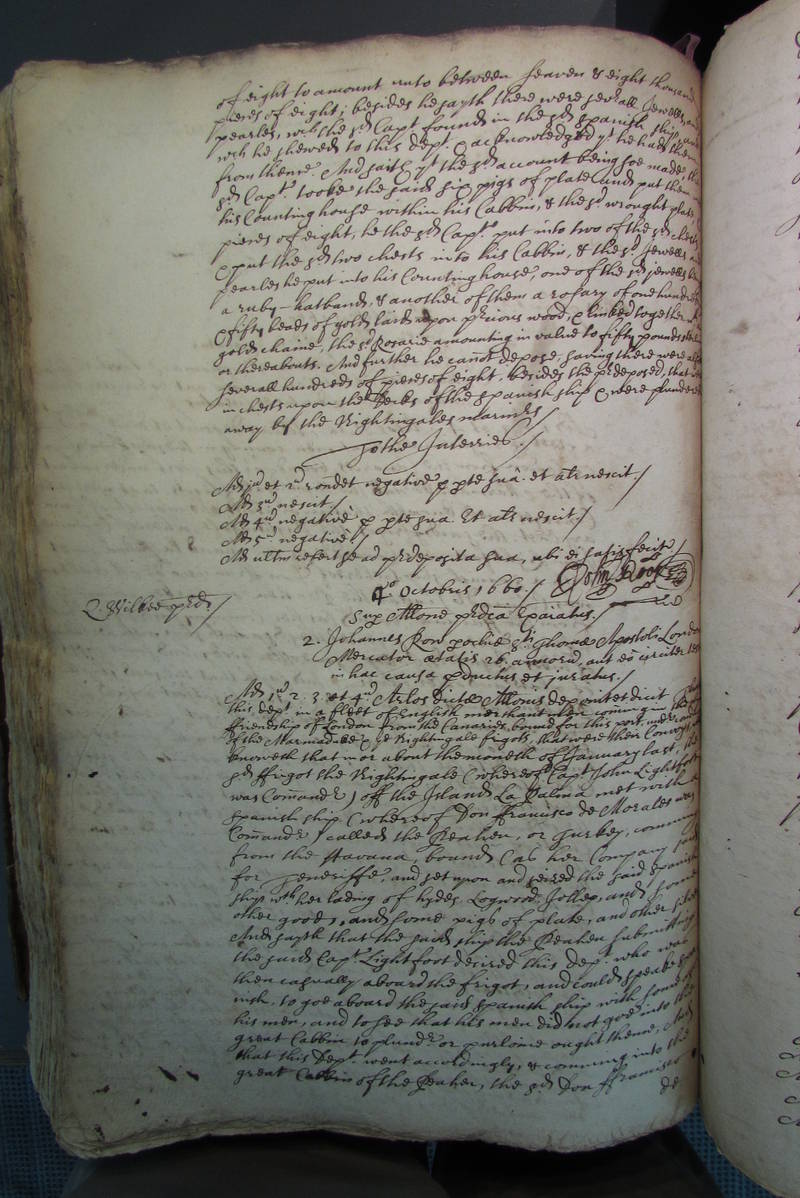 of eight to amount unto between seaven & eight thousand
pieces of eight; besides he sayth there were sev:rall Jewells, and
pearles, w:ch the s:d Capt found in the s:d Spanish ship, and
w:ch he shewed to this dep:t & acknowledged y:t he had them
from thence. And saith y:t the s:d account being soe made the
s:d Cap:t tooke the said six pigs of plate and put them in
his Counting house within his Cabbin, & the s:d wrought plate,
pieces of eight, he the s:d Cap:t put into two of the s:d chests
& put the s:d two chests into his Cabbin, & the s:d Jewells and
pearles he put into his Counting house, one of the s:d jewells be
a ruby-hatband, & another of them a rosary of one hundred
& fifty beads of gold laid upon p:rcious wood, & linked together
gold chaine, the s:d Rosarie amounting in value to fifty pounds
or thereabouts. And further he cañot depose, saving there were also
severall hundreds of pieces of eight, besides the p:rdeposed, that
in chests upon the Decks of the spanish ship & were plundered
away by the Nightingales marin:rs /
To the Interries. /
Ad j:u et 2:u rondet negative p pte sua. et alr nescit. /
Ad 3:u nescit /
Ad 4:u negative p pte sua. Et alr nescit. /
Ad 5:u negative. /
Ad ultm refert se ad p:rdeposita sua, ubi ei satisfecit /
4:o Octobris, 1660. / John
Sup Allone pred:ca Exaiatus. /
R. Wilkee p:rd /
2. Johannes Ron pochiæ S:ti Thomæ Apostoli London
Mercator ætatis 26 annoru, aut eo circiter
in hac causa pductus et juratus. /
Ad 1:u 2. 3. et 4:u Arlos dictæ Allonis deponit et dicit That
this dep:t in a fleet of English merchant ships coming in the
ffriendship of London from the Canaries, bound for this port, under
of the Marmaduke & y:e Nightingale frigots, that were their Convoy
knoweth that in or about the moneth of January last, the
s:d ffrigot the Nightingale (whereof Cap:t John Lightfoot
was Comand:r) off the Island La Palma met with a
spanish ship (whereof Don ffrancisco de Morales was
Comand:r) called the Peahen, or Turkey, comming
from the Havana, bound (as her Company said
for Teneriffe, and set upon and seized the said spanish
ship w:th her lading of hydes, Logwood, Jollop, and some
other goods, and some pigs of plate, and other
And sayth that the said ship the Peahen submitting
the said Cap:t Lightfoot desired this dep:t who was
then casually aboard the frigot, and could speake
nish, to goe aboard the said spanish ship with some of
his men, and to see that his men did not goe into the
great Cabbin to plund:r or purloine ought thence, And
that this dep:t went accordingly, & comming into the
great Cabbin of the Peahen, the s:d Don ffrancisco
de